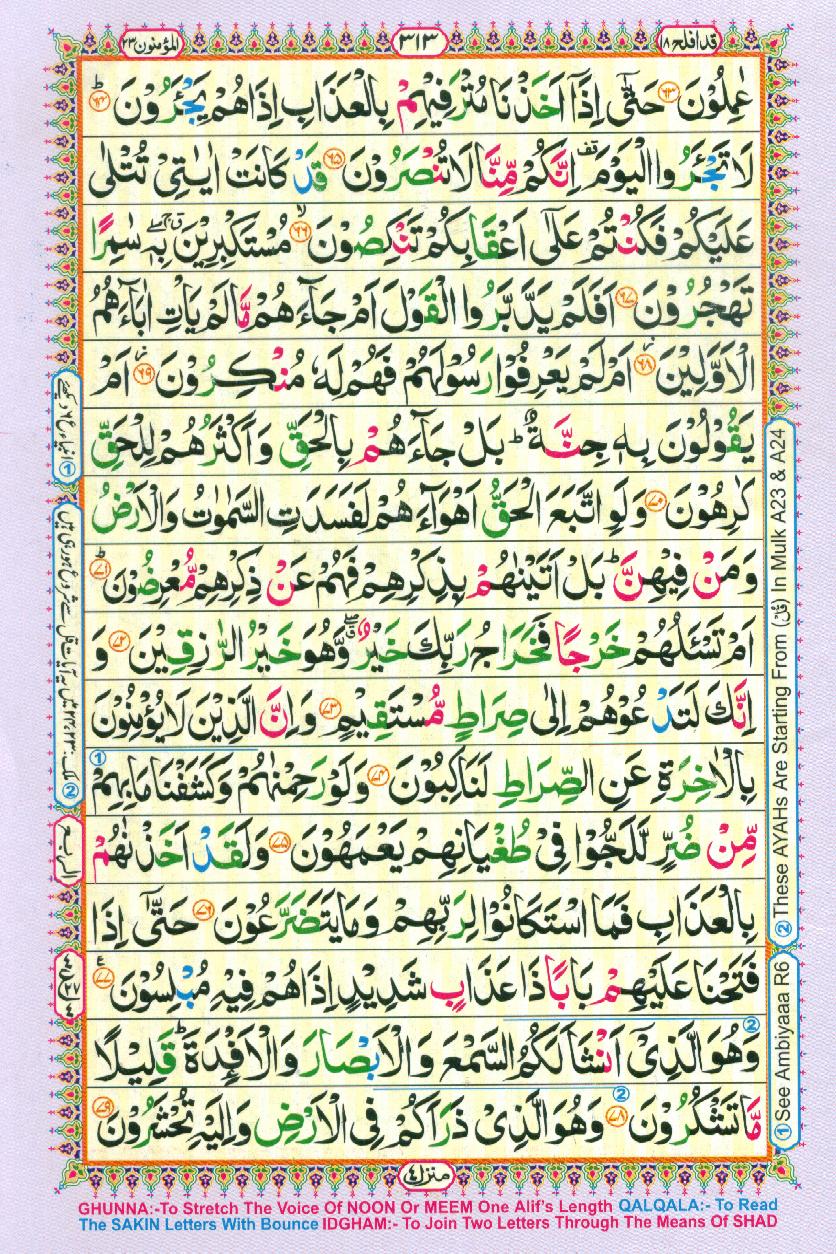 قد افلح ۱۸
۳۱۳
المؤمنون ۲۳
عٰمِلُوْنَ ﴿۶۳﴾ حَتّٰۤی اِذَاۤ اَخَذْنَا مُتْرَفِیْهِمْ بِالْعَذَابِ اِذَا هُمْ یَجْـَٔرُوْنَ ﴿۶۴﴾ؕ
لَا تَجْـَٔرُوا الْیَوْمَ ۫ اِنَّكُمْ مِّنَّا لَا تُنْصَرُوْنَ ﴿۶۵﴾ قَدْ كَانَتْ اٰیٰتِیْ تُتْلٰی
عَلَیْكُمْ فَكُنْتُمْ عَلٰۤی اَعْقَابِكُمْ تَنْكِصُوْنَ ﴿۶۶﴾ۙ مُسْتَكْبِرِیْنَ ۖۗ بِهٖ سٰمِرًا
تَهْجُرُوْنَ ﴿۶۷﴾ اَفَلَمْ یَدَّبَّرُوا الْقَوْلَ اَمْ جَآءَهُمْ مَّا لَمْ یَاْتِ اٰبَآءَهُمُ
الْاَوَّلِیْنَ ﴿۶۸﴾ؗ اَمْ لَمْ یَعْرِفُوْا رَسُوْلَهُمْ فَهُمْ لَهٗ مُنْكِرُوْنَ ﴿۶۹﴾ؗ اَمْ
یَقُوْلُوْنَ بِهٖ جِنَّةٌ ؕ بَلْ جَآءَهُمْ بِالْحَقِّ وَاَكْثَرُهُمْ لِلْحَقِّ
كٰرِهُوْنَ ﴿۷۰﴾ وَلَوِ اتَّبَعَ الْحَقُّ اَهْوَآءَهُمْ لَفَسَدَتِ السَّمٰوٰتُ وَالْاَرْضُ
وَمَنْ فِیْهِنَّ ؕ بَلْ اَتَیْنٰهُمْ بِذِكْرِهِمْ فَهُمْ عَنْ ذِكْرِهِمْ مُّعْرِضُوْنَ ﴿۷۱﴾ؕ
اَمْ تَسْـَٔلُهُمْ خَرْجًا فَخَرَاجُ رَبِّكَ خَیْرٌ ۖۗ وَّهُوَ خَیْرُ الرّٰزِقِیْنَ ﴿۷۲﴾ وَ
اِنَّكَ لَتَدْعُوْهُمْ اِلٰی صِرَاطٍ مُّسْتَقِیْمٍ ﴿۷۳﴾ وَاِنَّ الَّذِیْنَ لَا یُؤْمِنُوْنَ
بِالْاٰخِرَةِ عَنِ الصِّرَاطِ لَنَاكِبُوْنَ ﴿۷۴﴾ وَلَوْ رَحِمْنٰهُمْ وَكَشَفْنَا مَا بِهِمْ
مِّنْ ضُرٍّ لَّلَجُّوْا فِیْ طُغْیَانِهِمْ یَعْمَهُوْنَ ﴿۷۵﴾ وَلَقَدْ اَخَذْنٰهُمْ
بِالْعَذَابِ فَمَا اسْتَكَانُوْا لِرَبِّهِمْ وَمَا یَتَضَرَّعُوْنَ ﴿۷۶﴾ حَتّٰۤی اِذَا
فَتَحْنَا عَلَیْهِمْ بَابًا ذَا عَذَابٍ شَدِیْدٍ اِذَا هُمْ فِیْهِ مُبْلِسُوْنَ ﴿۷۷﴾ع
وَهُوَ الَّذِیْۤ اَنْشَاَ لَكُمُ السَّمْعَ وَالْاَبْصَارَ وَالْاَفْـِٕدَةَ ؕ قَلِیْلًا
مَّا تَشْكُرُوْنَ ﴿۷۸﴾ وَهُوَ الَّذِیْ ذَرَاَكُمْ فِی الْاَرْضِ وَاِلَیْهِ تُحْشَرُوْنَ ﴿۷۹﴾
منزل ٤
② These AYAHs Are Starting From (قل) In Mulk A23 & A24
① See Ambiyaaa R6
GHUNNA:-To Stretch The Voice Of NOON Or MEEM One Alif's Length QALQALA:- To Read
The SAKIN Letters With Bounce IDGHAM:- To Join Two Letters Through The Means Of SHAD